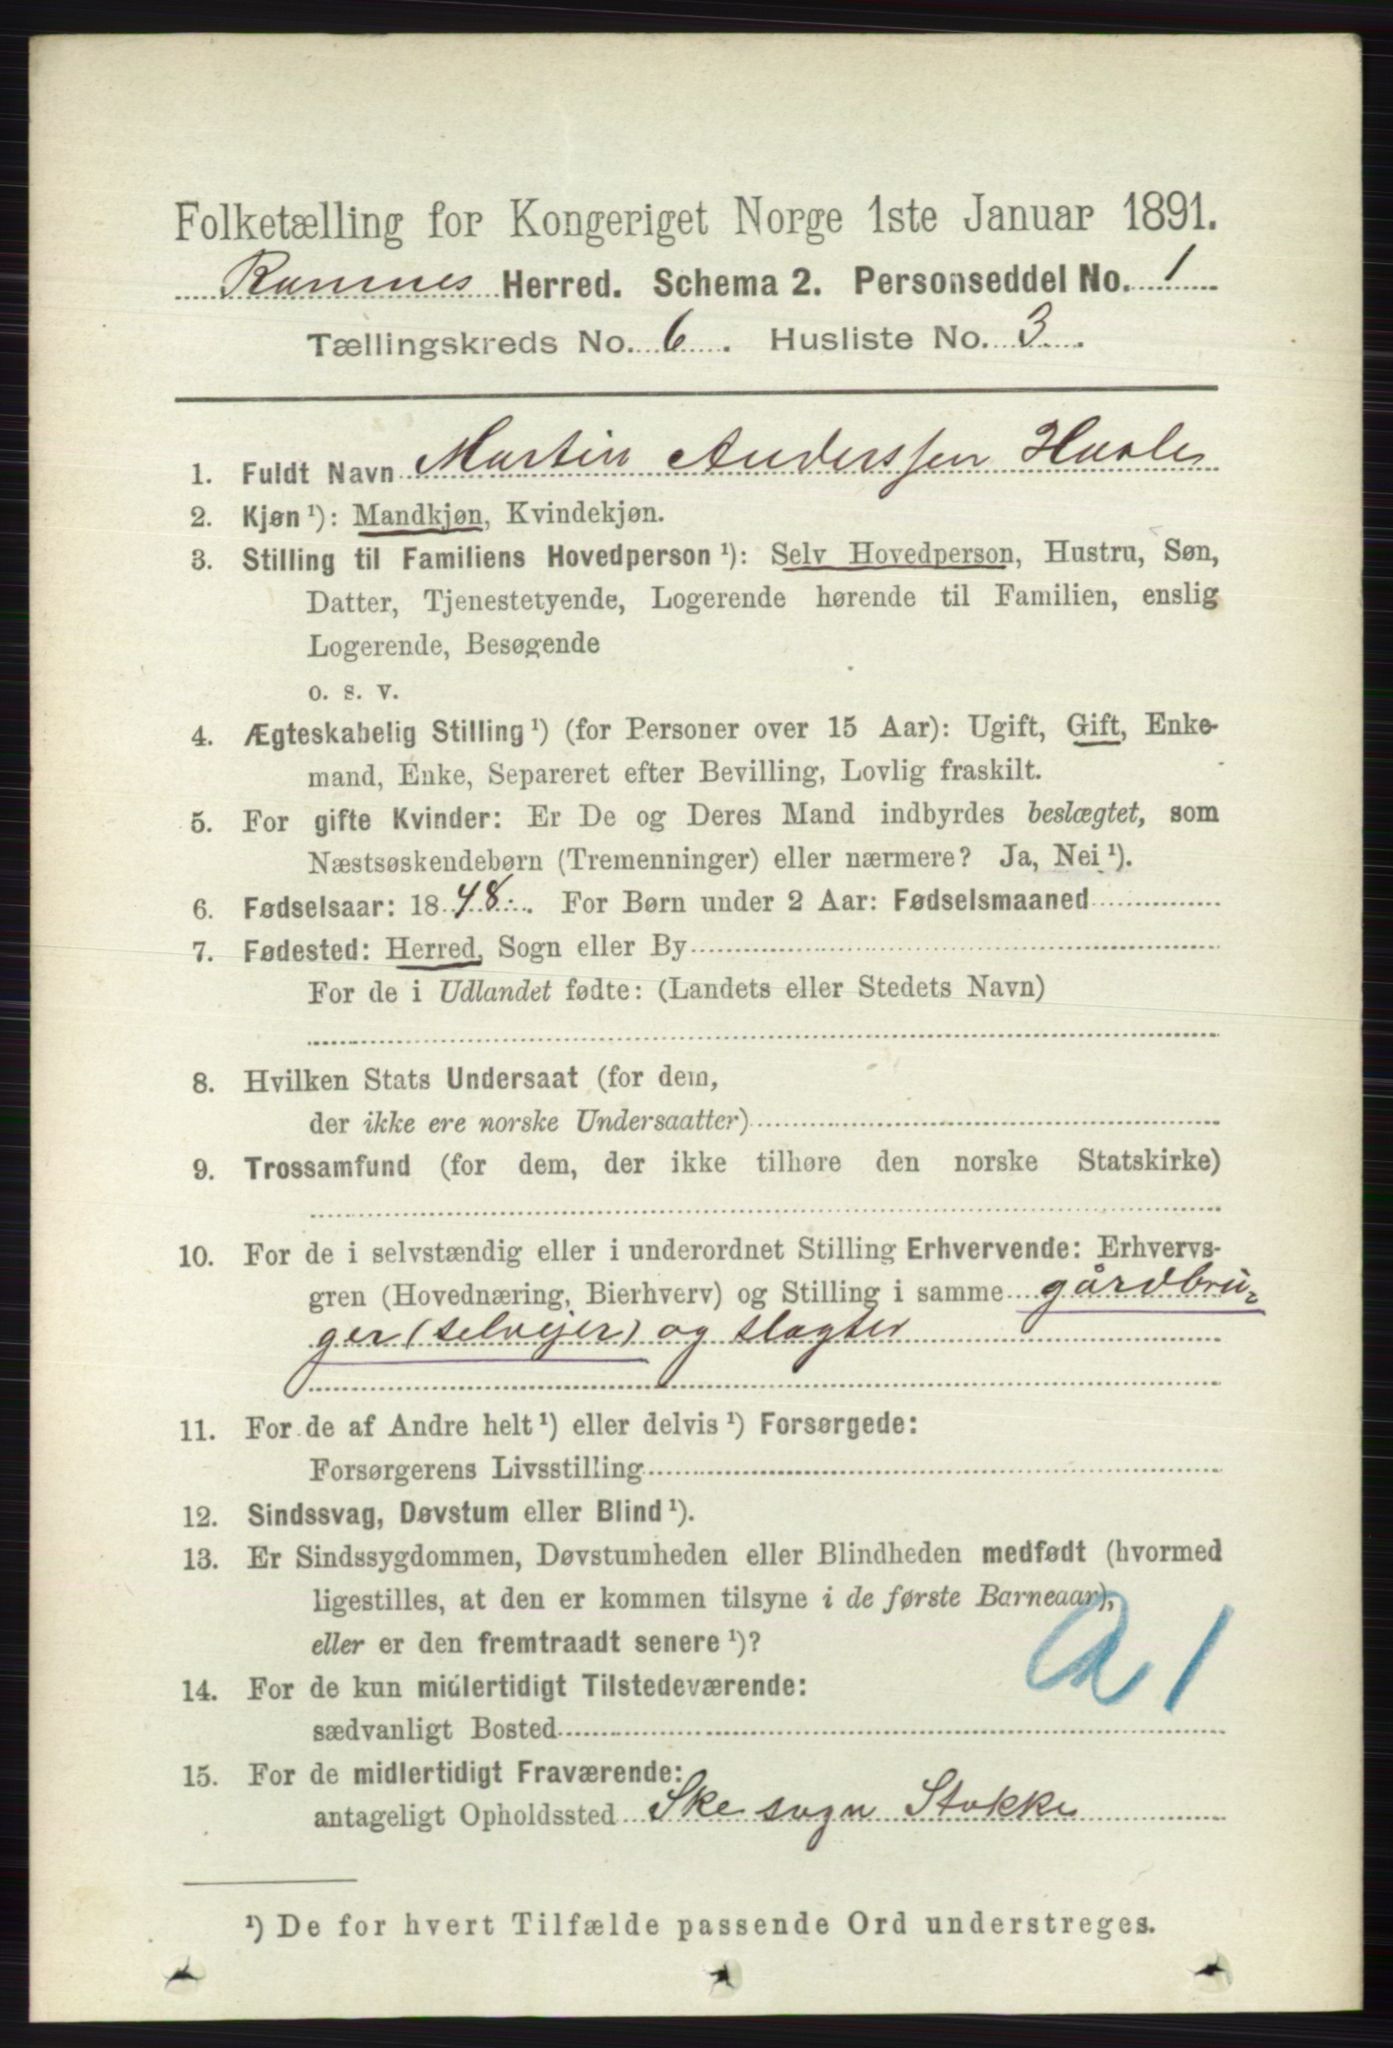 Folketælling for Kongeriget Norge 1ste Januar 1891.
Ramnes Herred. Schema 2. Personseddel No. 1
Tællingskreds No. 6. Husliste No. 3.
1. Fuldt Navn Martin Anderssen Haslev
2. Kjøn ¹): Mandkjøn, Kvindekjøn.
3. Stilling til Familiens Hovedperson ¹): Selv Hovedperson, Hustru, Søn,
Datter, Tjenestetyende, Logerende hørende til Familien, enslig
Logerende, Besøgende
o. s. v.
4. Ægteskabelig Stilling ¹) (for Personer over 15 Aar): Ugift, Gift, Enke-
mand, Enke, Separeret efter Bevilling, Lovlig fraskilt.
5. For gifte Kvinder: Er De og Deres Mand indbyrdes beslægtet, som
Næstsøskendebørn (Tremenninger) eller nærmere? Ja, Nei ¹).
6. Fødselsaar: 1848. For Børn under 2 Aar: Fødselsmaaned
7. Fødested: Herred, Sogn eller By
For de i Udlandet fødte: (Landets eller Stedets Navn)
8. Hvilken Stats Undersaat (for dem,
der ikke ere norske Undersaatter)
9. Trossamfund (for dem, der ikke tilhøre den norske Statskirke)
10. For de i selvstændig eller i underordnet Stilling Erhvervende: Erhvervs-
gren (Hovednæring, Bierhverv) og Stilling i samme gårdbru-
ger (selvejer) og slagter
11. For de af Andre helt ¹) eller delvis ¹) Forsørgede:
Forsørgerens Livsstilling
12. Sindssvag, Døvstum eller Blind ¹).
13. Er Sindssygdommen, Døvstumheden eller Blindheden medfødt (hvormed
ligestilles, at den er kommen tilsyne i de første Barneaar),
eller er den fremtraadt senere ¹)?
a 1
14. For de kun midlertidigt Tilstedeværende:
sædvanligt Bosted
15. For de midlertidigt Fraværende:
antageligt Opholdssted Ske sogn Stokke
¹) De for hvert Tilfælde passende Ord understreges.